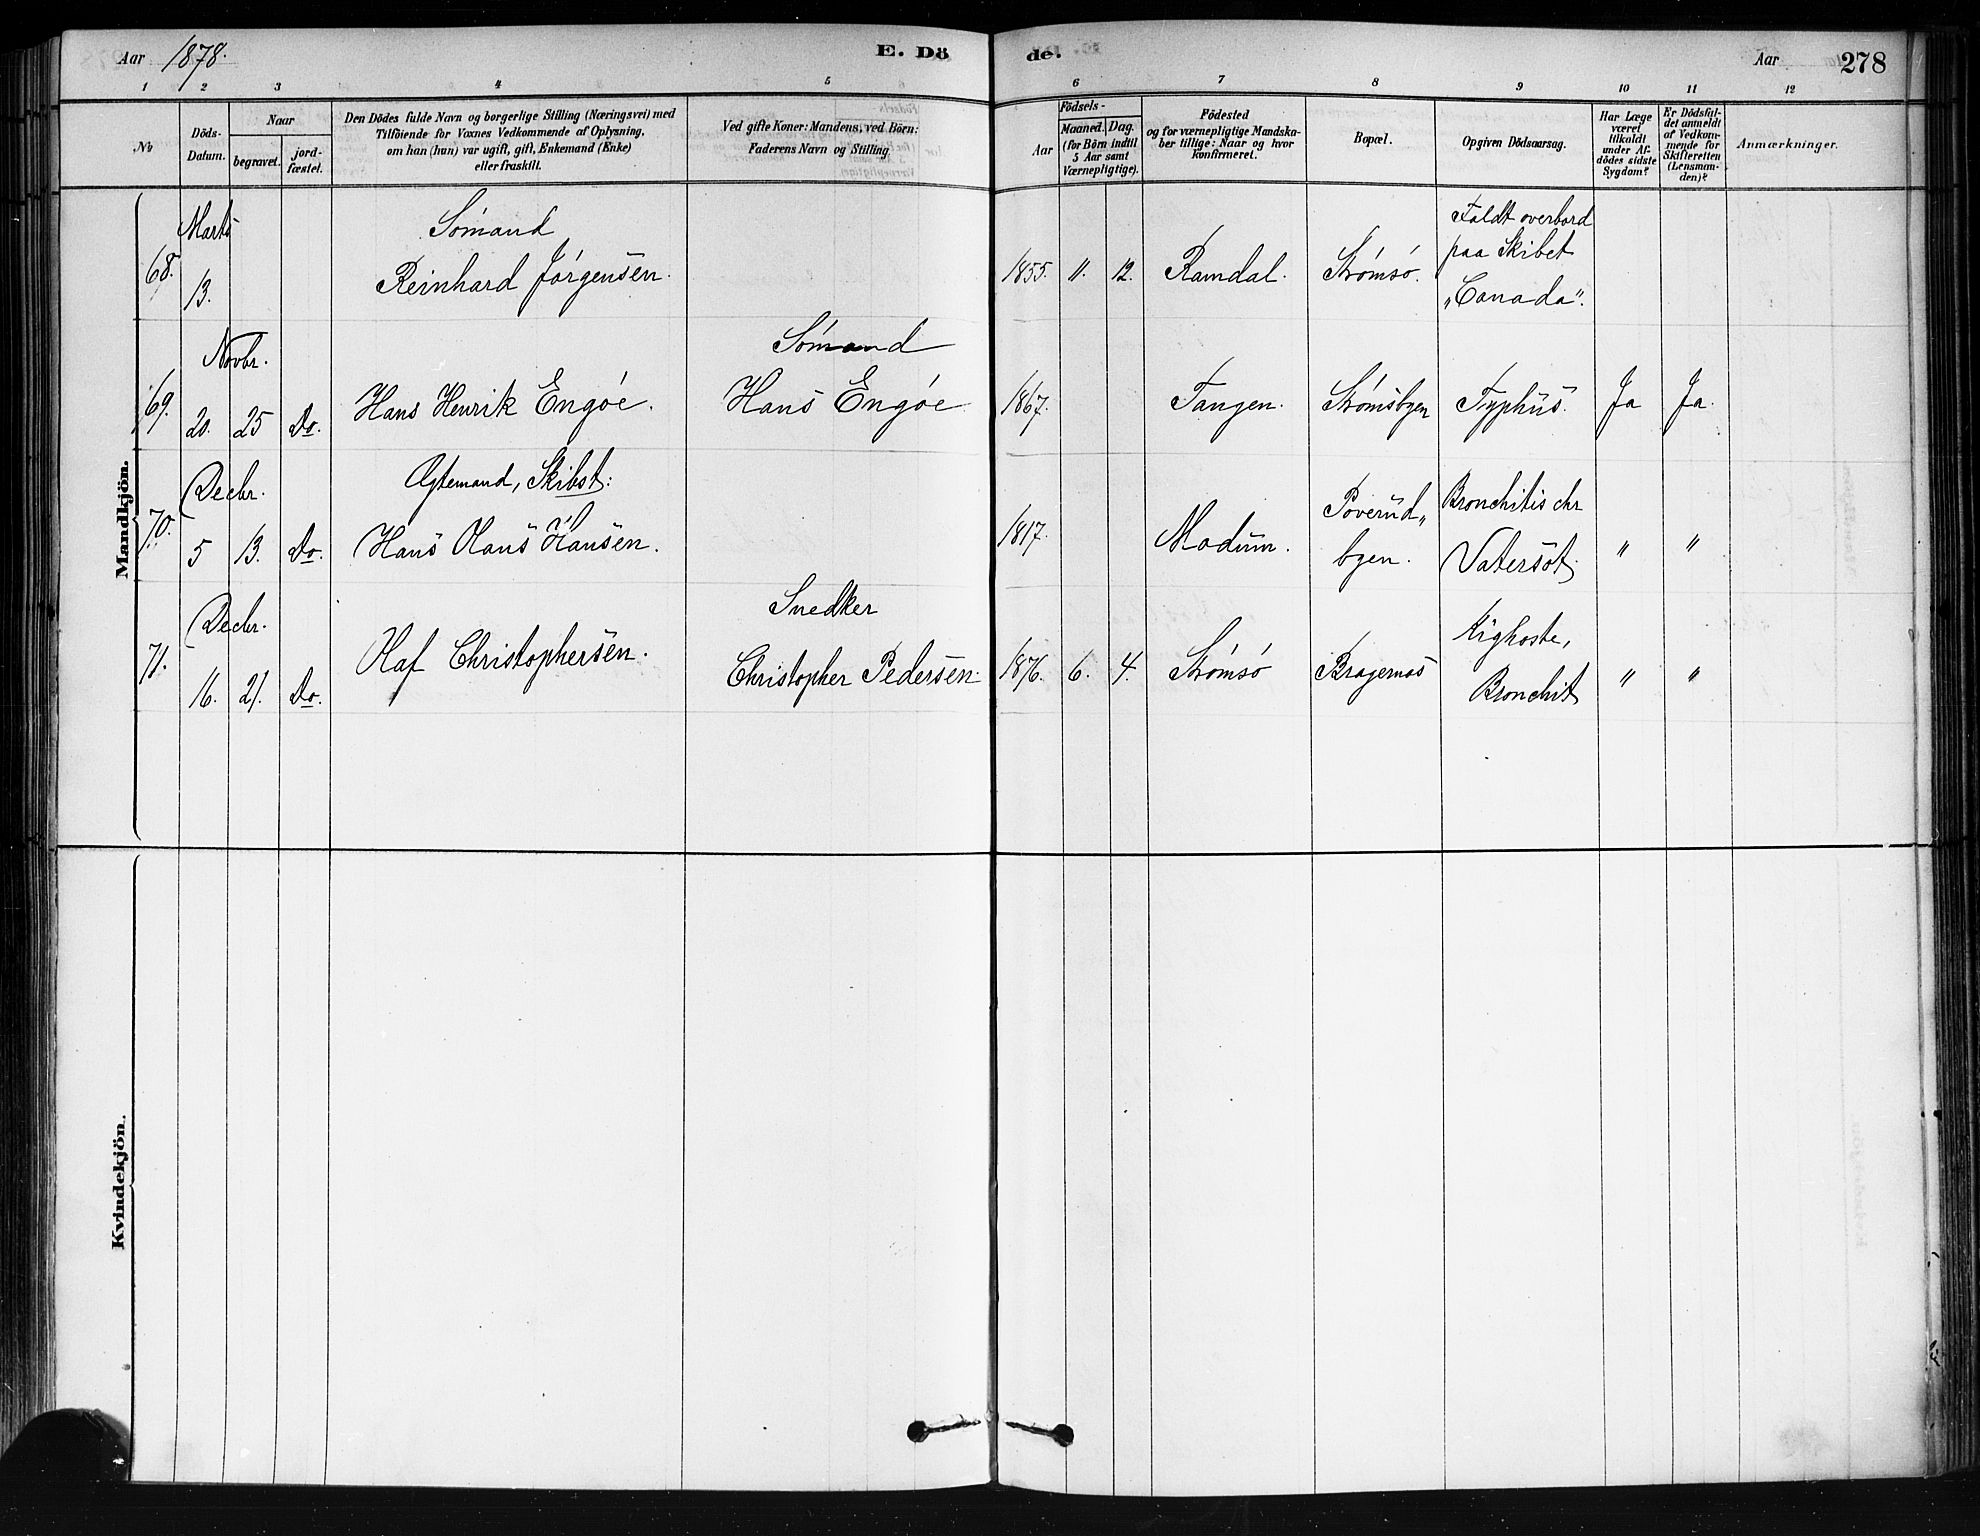 Aar 1878. E. Dö de. Aar 278
1 2 3 4 5 6 7 8 9 10 11 12
No
Döds-
Datum.
Naar
begravet.
jord-
fæstet.
Den Dödes fulde Navn og borgerlige Stilling (Næringsvei) med
Tilföiende for Voxnes Vedkommende af Oplysning,
om han (hun) var ugift, gift, Enkemand (Enke)
eller fraskilt.
Ved gifte Koner: Mandens, ved Börn:
Faderens Navn og Stilling.
Födsels-
Aar
Maaned. Dag.
(for Börn indtil
5 Aar samt
Værnepligtige).
Födested
og for værnepligtige Mandska-
ber tillige: Naar og hvor
konfirmeret.
Bopæl.
Opgiven Dödsaarsag.
Har Læge
været
tilkaldt
under Af-
dödes sidste
Sygdom?
Er Dödsfal-
det anmeldt
af Vedkom-
mende for
Skifteretten
(Lensman-
den)?
Anmærkninger.
Mandkjön.
68.
Marts
13.
Sømand
Reinhard Jørgensen.
1855. 11. 12. Ramdal. Strømsø.
Faldt overbord
paa Skibet
„Canada“.
69.
Novbr.
20. 25 Do.
Hans Henrik Engøe.
Sømand
Hans Engøe
1867. Tangen. Strømsbyen Typhus. Ja Ja.
70.
Decbr.
5 13. Do.
Ægtemand, Skibst:
Hans Olaus Hansen.
1817. Modum.
Poverud„
byen.
Bronchitis chr
Vatersot. " "
71.
Decbr.
16. 21. Do.
Olaf Christophersen.
Snedker
Christopher Pedersen.
1876. 6. 4. Strømsø Bragernæs
Kighoste,
Bronchit " "
Kvindekjön.